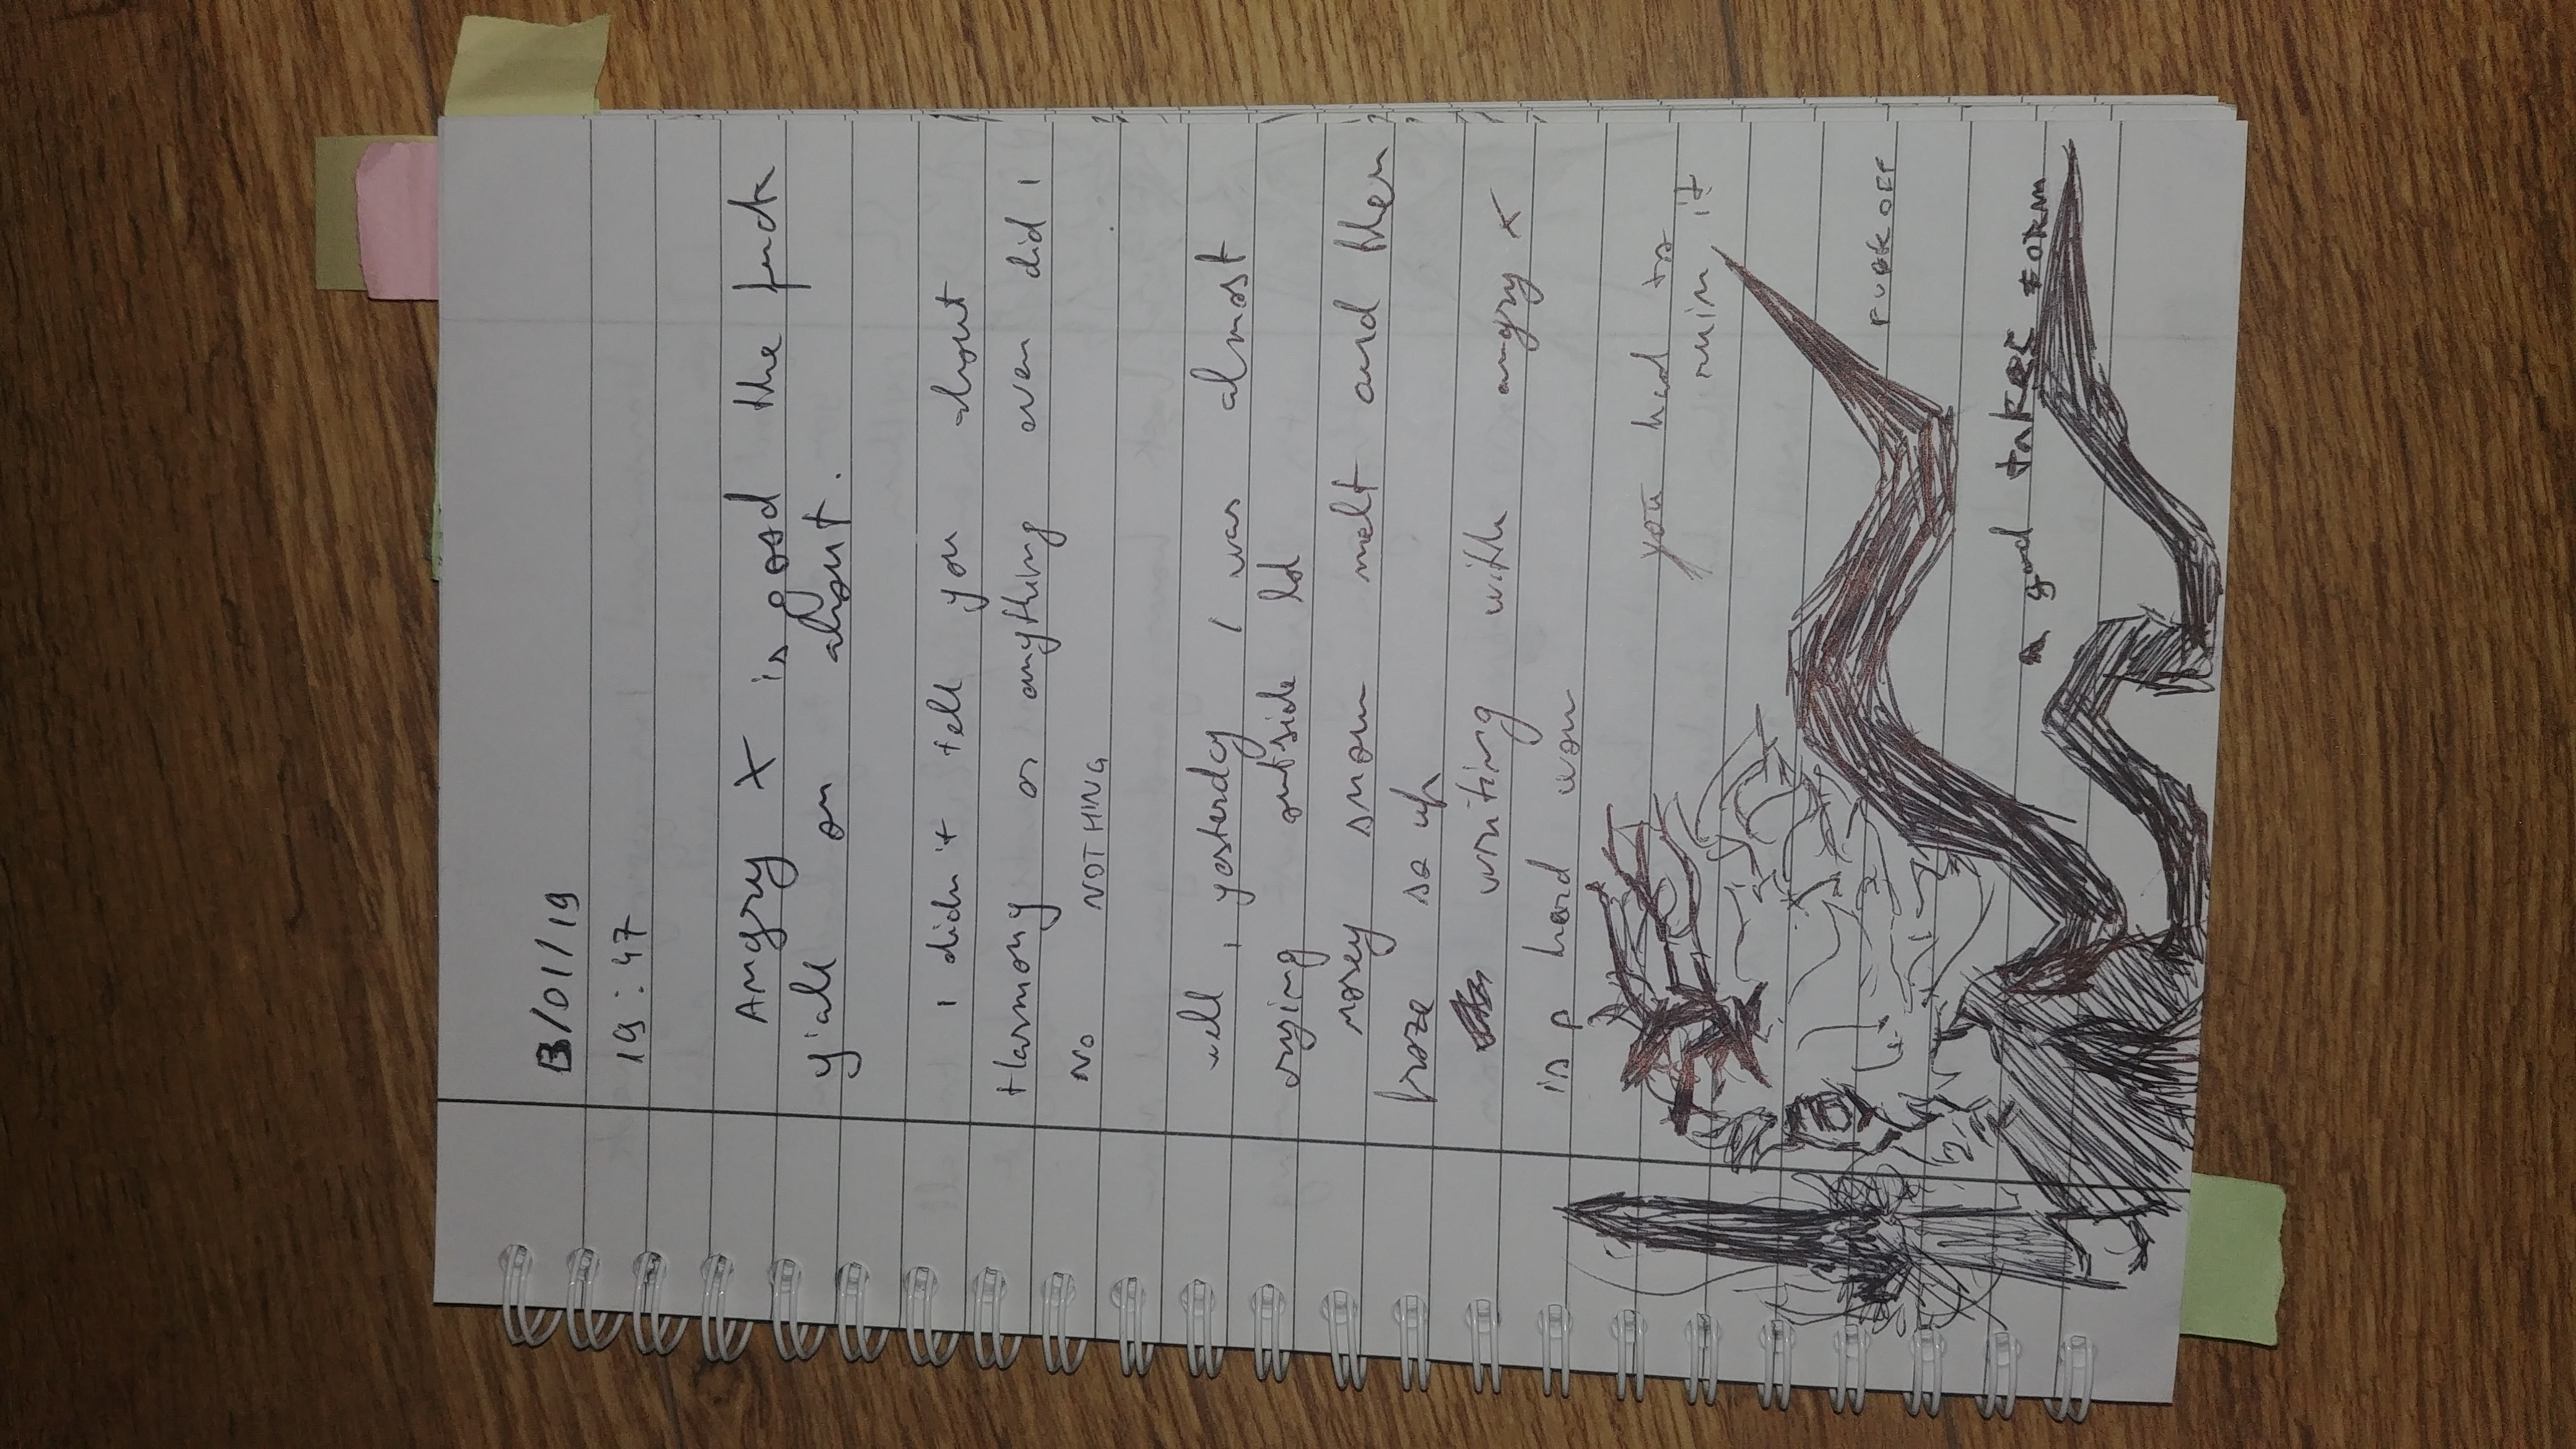 13/01/19
19:47
Angry X is good the fuck
y'all on about.
I didn't tell you about
Harmony or anything even did I
No NOTHING
well, yesterday I was almost
crying outside lol
snow melt and then
froze so uh
writing with angry X
is p hard wow
you had to
ruin it
FUCK OFF
A god takes FORM